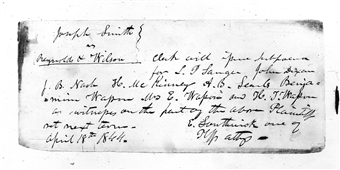 Joseph Smith
vs
Reynolds & Wilson. Clerk will issue subpoena
for L. P. Sanger John Dixon
J. B. Nash H. McKinney A. B. Searls Benja-
=min Wasson Mrs E. Wasson and H. T. Wasson
as witnesses on the part of the above Plaintiff
at next term. E. Southwick one of
April 18th 1844. Plffs attys